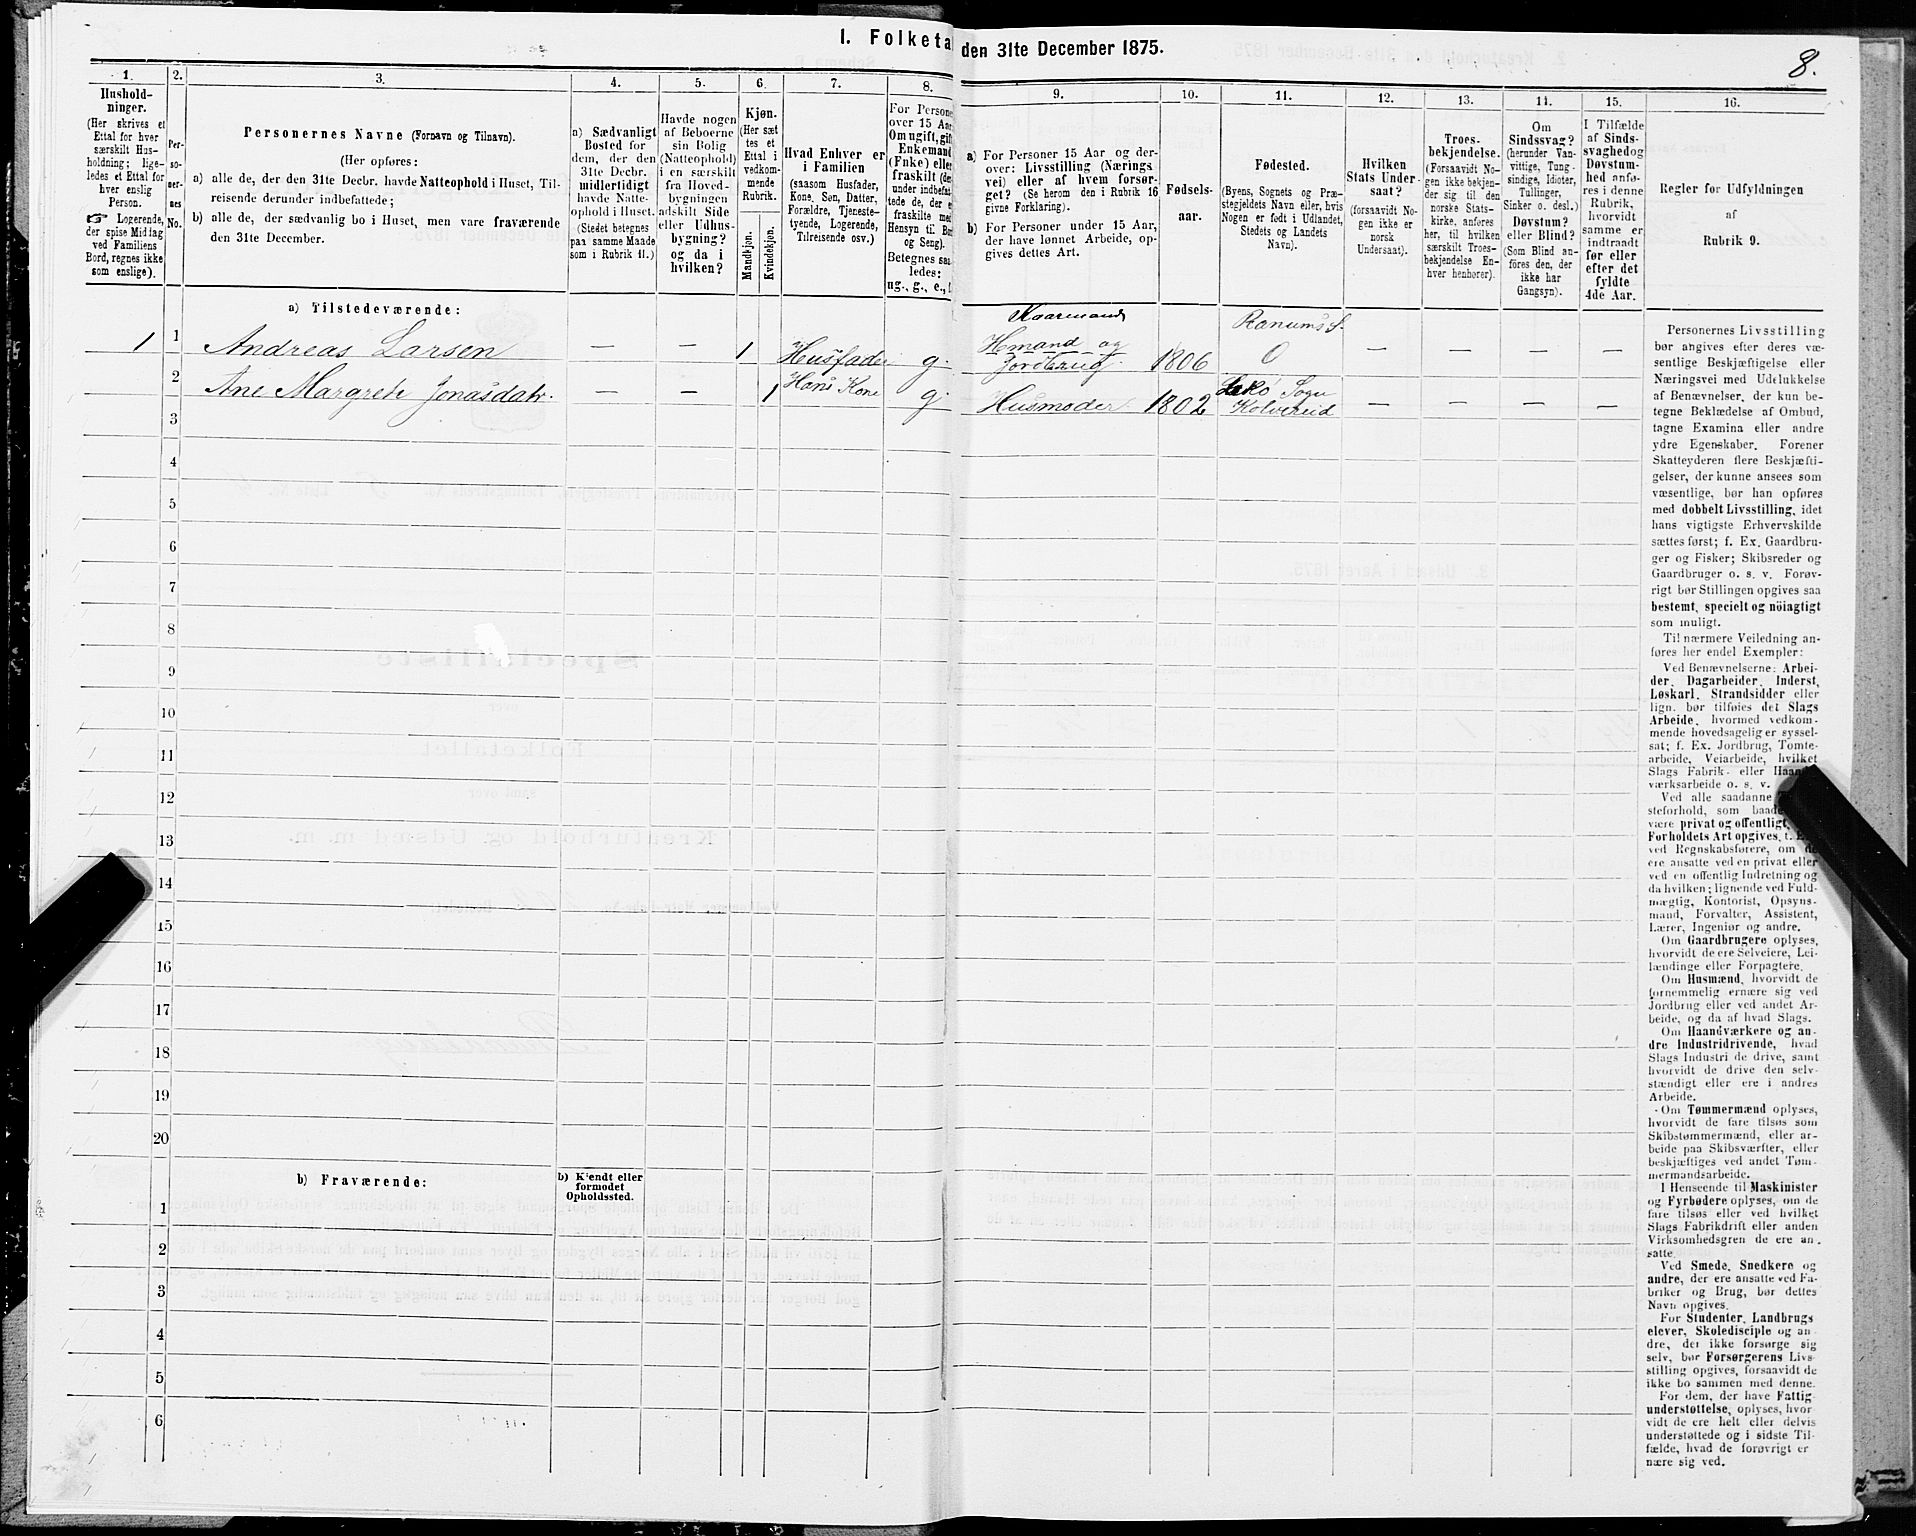 I. Folketal den 31te December 1875.
8.
1.
Hushold-
ninger.
(Her skrives et
Ettal for hver
særskilt Hus-
holdning; lige-
ledes et Ettal for
hver enslig
Person.
☞ Logerende,
der spise Middag
ved Familiens
Bord, regnes ikke
som enslige).
2.
Per-
so-
ner-
nes
No.
3.
Personernes Navne (Fornavn og Tilnavn).
(Her opføres:
a) alle de, der den 31te Decbr. havde Natteophold i Huset, Til-
reisende derunder indbefattede;
b) alle de, der sædvanlig bo i Huset, men vare fraværende
den 31te December.
4.
a) Sædvanligt
Bosted for
dem, der den
31te Decbr.
midlertidigt
havde Natte-
ophold i Huset.
(Stedet betegnes
paa samme Maade
som i Rubrik 11.)
5.
Havde nogen
af Beboerne
sin Bolig
(Natteophold)
i en særskilt
fra Hoved-
bygningen
adskilt Side
eller Udhus-
bygning?
og da i
hvilken?
6.
Kjøn.
(Her sæt
tes et
Ettal i
vedkom-
mende
Rubrik.
Mandkjøn.
Kvindekjøn.
7.
Hvad Enhver er
i Familien
(saasom Husfader,
Kone, Søn, Datter,
Forældre, Tjeneste-
tyende, Logerende,
Tilreisende osv.)
8.
For Persone
over 15 Aar
Om ugift, gif
Enkemand
(Enke) elle
fraskilt (de
under indbefat
tede de, der e
fraskilte med
Hensyn til Bo
og Seng).
Betegnes saa
ledes:
ug., g., e.,
9.
a) For Personer 15 Aar og der-
over: Livsstilling (Nærings
vei) eller af hvem forsør-
get? (Se herom den i Rubrik 16
givne Forklaring).
b) For Personer under 15 Aar,
der have lønnet Arbeide, op-
gives dettes Art.
10.
Fødsels-
aar.
11.
Fødested.
(Byens, Sognets og Præ-
stegjeldets Navn eller, hvis
Nogen er født i Udlandet,
Stedets og Landets
Navn).
12.
Hvilken
Stats Under-
saat?
(forsaavidt No-
gen ikke er
norsk
Undersaat).
13.
Troes-
bekjendelse.
(Forsaavidt No-
gen ikke bekjen-
der sig til den
norske Stats-
kirke, anføres
her, til hvilken
særskilt Troes-
bekjendelse En-
hver henhører).
14.
Om
Sindssvag?
(herunder Van-
vittige, Tung-
sindige, Idioter,
Tullinger,
Sinker o. desl.)
Døvstum?
eller Blind?
(Som Blind an-
føres den, der
ikke har
Gangsyn).
15.
I Tilfælde
af Sinds-
svaghed og
Døvstum-
hed anfø-
res i denne
Rubrik,
hvorvidt
samme er
indtraadt
før eller
efter det
fyldte
4de Aar.
16.
Regler for Udfyldningen
af
Rubrik 9.
a) Tilstedeværende:
1 1 Andreas Larsen — — 1 Husfader g. Kaarmand Hemand og Jordbrug 1806 Ranums S. 0
2 Ane Margreth Jonasdatr. — — 1 Hans Kone g. Husmoder 1802 Lekø Sogn Kolvereid — — — —
3
4
5
6
7
8
9
10
11
12
13
14
15
16
17
18
19
20
b) Fraværende:
b) Kjendt eller
formodet
Opholdssted.
1
2
3
4
5
6
Personernes Livsstilling
bør angives efter deres væ-
sentlige Beskjæftigelse eller
Næringsvei med Udelukkelse
af Benævnelser, der kun be-
tegne Beklædelse af Ombud,
tagne Examina eller andre
ydre Egenskaber. Forener
Skatteyderen flere Beskjæfti-
gelser, der kunne ansees som
væsentlige, bør han opføres
med dobbelt Livsstilling, idet
hans vigtigste Erhvervskilde
sættes først; f. Ex. Gaardbru-
ger og Fisker; Skibsreder og
Gaardbruger o. s. v. Forøv-
rigt bør Stillingen opgives saa
bestemt, specielt og nöiagtigt
som muligt.
Til nærmere Veiledning an-
føres her endel Exempler:
Ved Benævnelserne: Arbei-
der, Dagarbeider, Inderst,
Løskarl, Strandsidder eller
lign. bør tilføies det Slags
Arbeide, hvormed vedkom-
mende hovedsagelig er syssel-
sat; f. Ex. Jordbrug, Tomte-
arbeide, Veiarbeide, hvilket
Slags Fabrik- eller Haand-
værksarbeide o. s. v.
Ved alle saadanne
steforhold, som baade
være privat og offentligt,
Forholdets Art opgives, f. Ex.
ved Regnskabsførere, om de
ere ansatte ved en privat eller
ved en offentlig Indretning og
da hvilken; lignende ved Fuld-
mægtig, Kontorist, Opsyns-
mand, Forvalter, Assistent,
Lærer, Ingeniør og andre.
Om Gaardbrugere oplyses,
hvorvidt de ere Selveiere, Lei-
lændinge eller Forpagtere.
Om Husmænd, hvorvidt de
fornemmelig ernære sig ved
Jordbrug eller ved andet Ar-
beide, og da af hvad Slags.
Om Haandværkere og an-
dre Industridrivende, hvad
Slags Industri de drive, samt
hvorvidt de drive den selv-
stændigt eller ere i andres
Arbeide.
Om Tømmermænd oplyses,
hvorvidt de fare tilsøs som
Skibstømmermænd, eller ar-
beide paa Skibsværfter, eller
beskjæftiges ved andet Tøm-
mermandsarbeide.
I Henseende til Maskinister
og Fyrbødere oplyses, om de
fare tilsøs eller ved hvilket
Slags Fabrikdrift eller anden
Virksomhedsgren de ere an-
satte.
Ved Smede, Snedkere og
andre, der ere ansatte ved Fa-
briker og Brug, bør dettes
Navn opgives.
For Studenter, Landbrugs
elever, Skoledisciple og an-
dre, der ikke forsørge sig
selv, bør Forsørgerens Livs-
stilling opgives, forsaavidt de
ikke bo sammen med denne.
For dem, der have Fattig
understøttelse, oplyses, hvor
vidt de ere helt eller delvis
understøttede og i sidste Til-
fælde, hvad de forøvrigt er
nære sig ved.